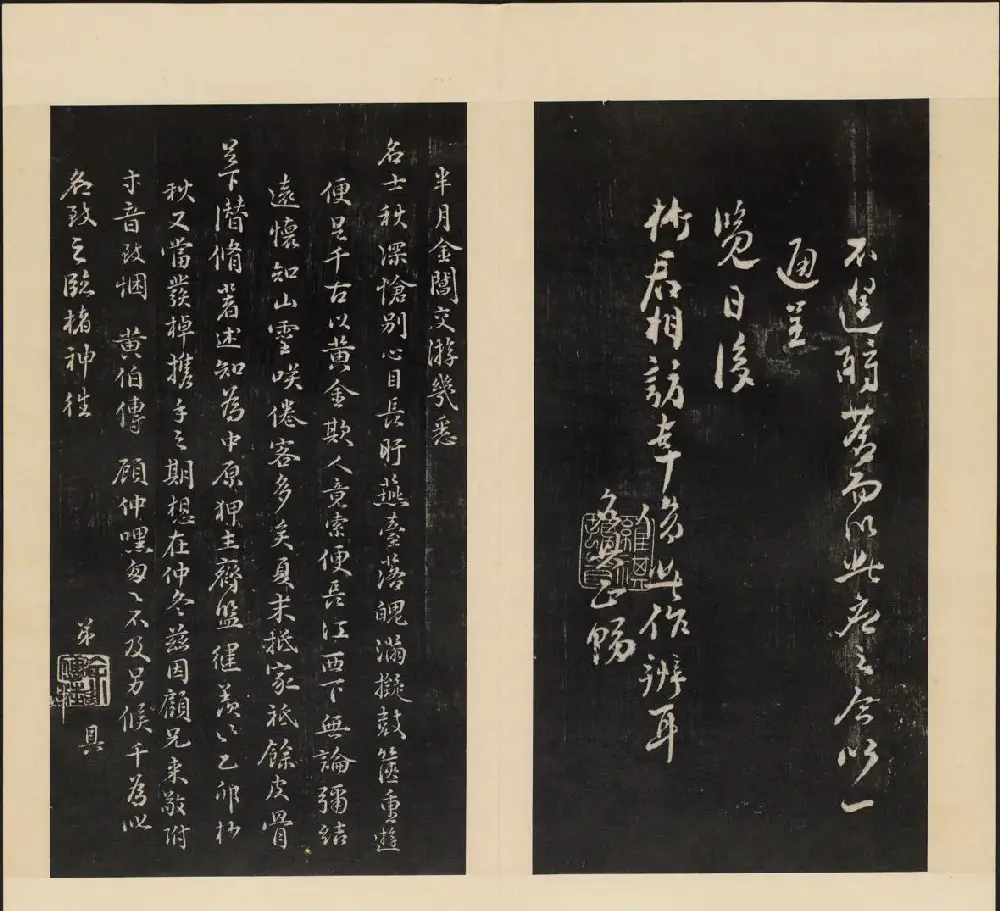 不選醇者而以此應之今以一
通呈
覽日後
術者相訪幸多此作辨耳
名具正賜
半月金閶交游幾悉
名士秋深愴別心目長盱燕臺落魄滿擬鼓篋重遊
便足千古以黃金欺人竟索便長江西下無論彌結
遠懷知山靈咲倦客多矣夏末抵家祗餘皮骨
足下潛脩著述知為中原狎主齊盟健羨己卯杪
秋又當發棹攜手之期想在仲冬茲因顧兄來敬附
寸音致悃 黃伯傳 顧仲嘿匆匆不及另候千為
名致之臨楮神往
弟 具